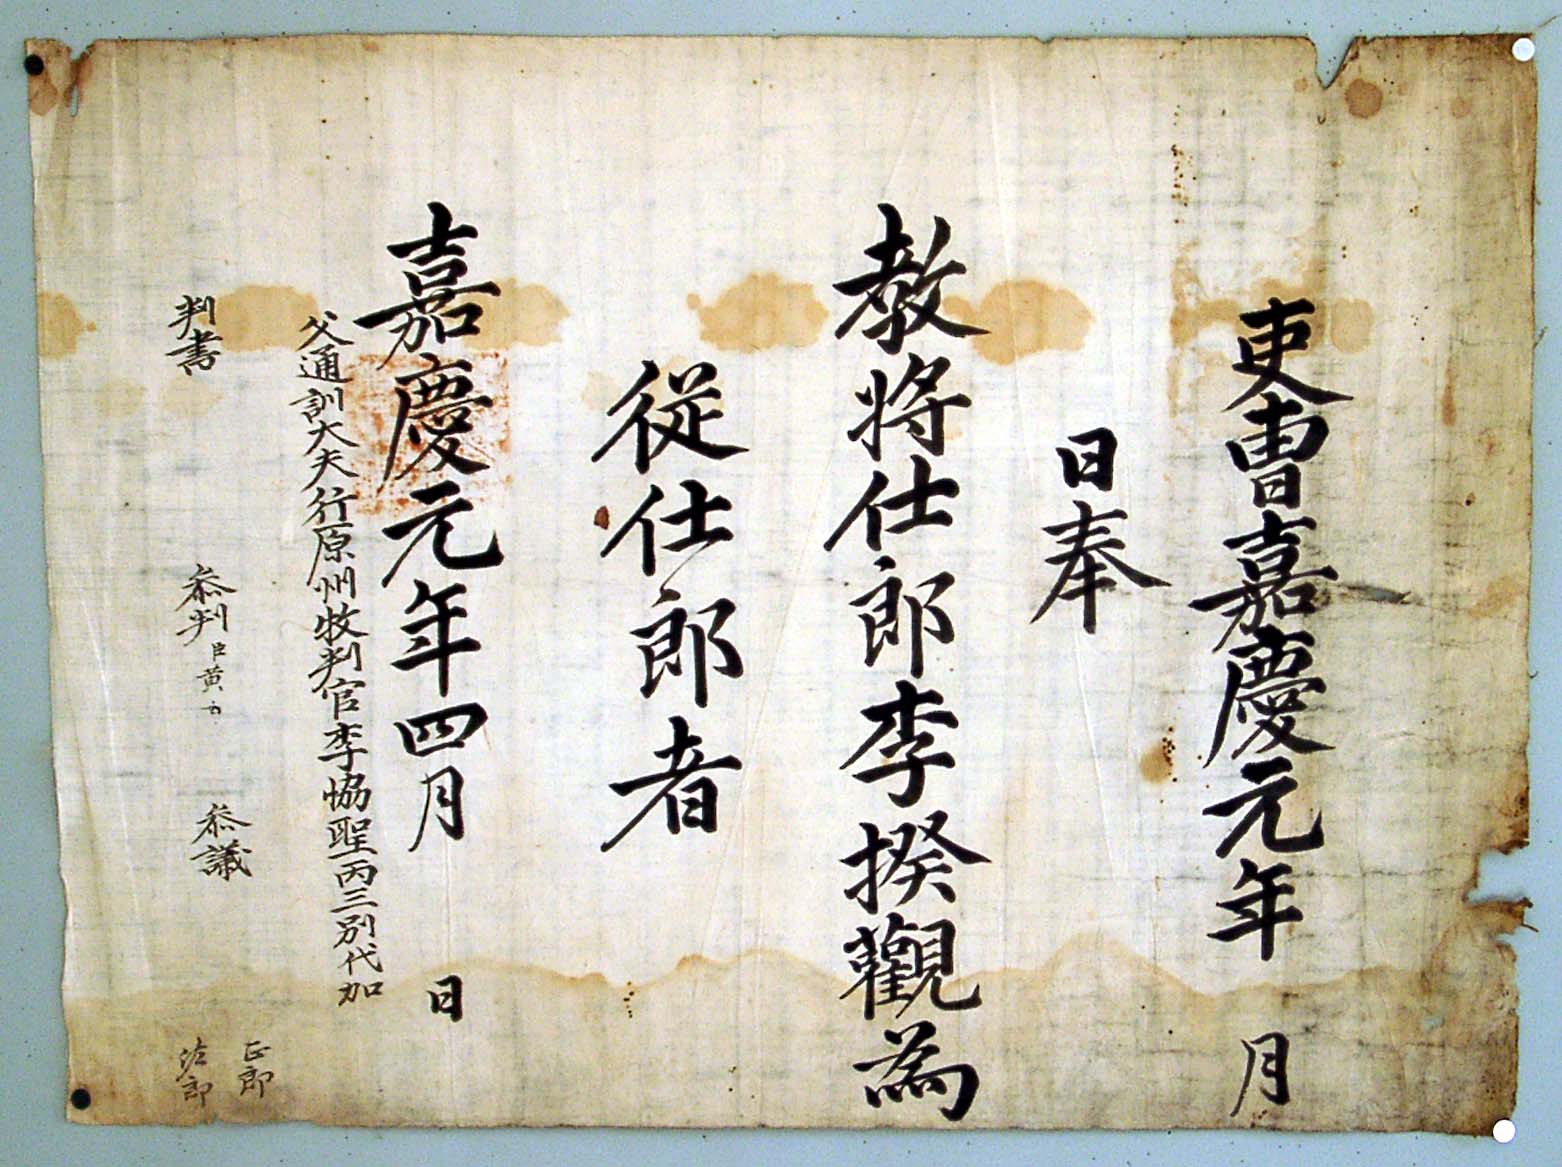 吏曺嘉慶元年 月
日奉
教將仕郎李揆觀為
從仕郎者
嘉慶元年四月 日
父通訓大夫行原州牧判官李協聖丙三別代加
判書 叅判臣黃 叅議
正郎
佐郎